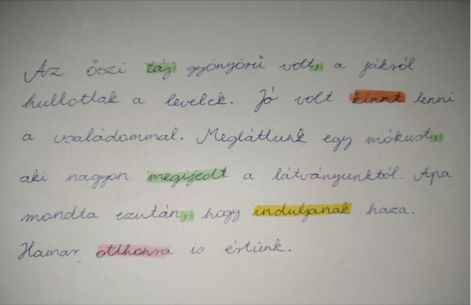 Az őszi táj gyönyörű volt, a fákról
hullottak a levelek. Jó volt kinnt lenni
a családommal. Megláttunk egy mókust,
aki nagyon megijedt a látványunktól. Apa
mondta ezután, hogy induljanak haza.
Hamar otthonra is értünk.